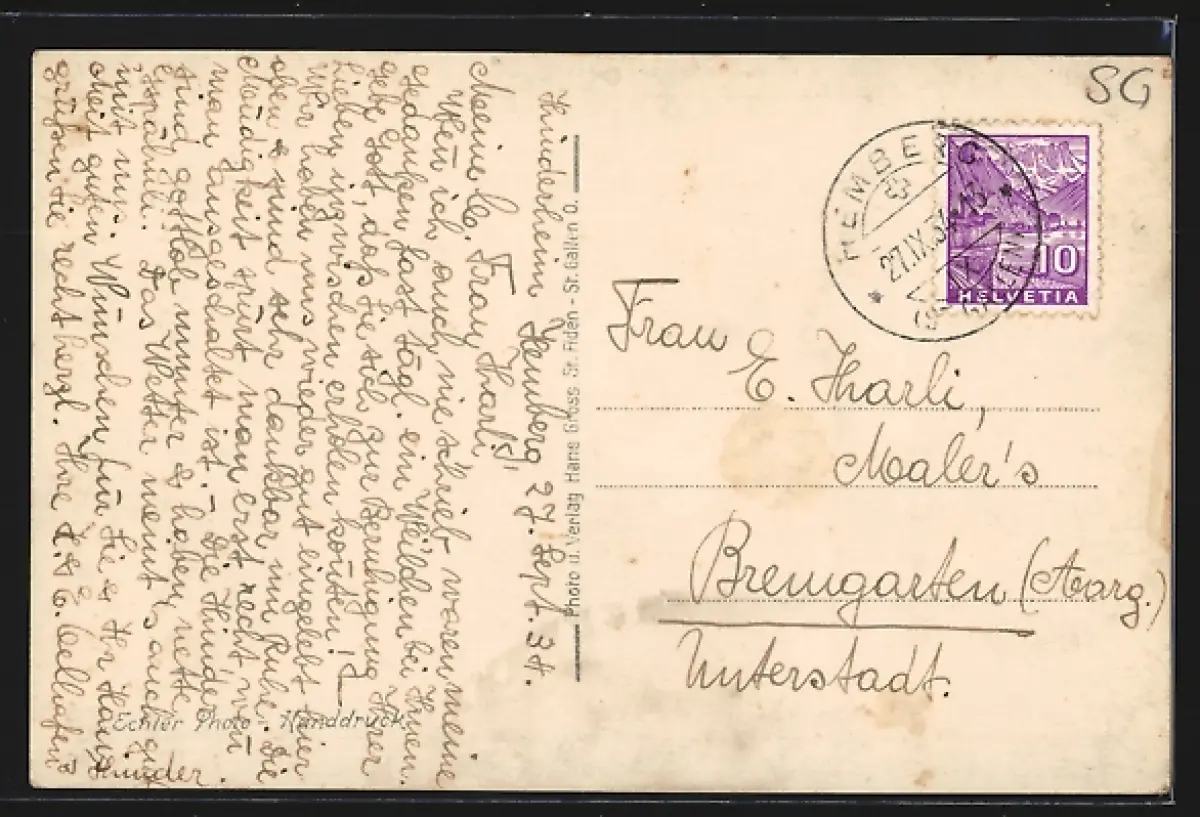 Kinderheim Hemberg, 27. Sept. 34.
Meine lb. Frau Tharli!
Wen̄ ich auch nie schrieb waren meine
Gedanken fast tägl. ein Weilchen bei Ihnen.
Gebe Gott, daß Sie sich zur Beruhigung Ihrer
Lieben inzwischen erholen kon̄ten!
Wir haben uns wieder gut eingelebt hier
oben & sind sehr dankbar um Ruhe. Die
Müdigkeit spürt man erst recht wen̄
man ausgeschaltet ist. - Die Kinder
sind gottlob munter & haben nette
Das Wetter meint's auch gut
mit uns.
Mit guten Wünschen für Sie & Ihr Haus
grüßen Sie recht herzl. Ihre
Kinder.
Echter Photo - Handdruck
Photo u. Verlag Hans Gross St. Fiden - St. Gallen O.
SG
HEMBERG
27.IX.34.-13
(ST. GALLEN)
10
HELVETIA
Frau
E. Tharli,
Maler's
Bremgarten (Aarg.)
Unterstadt.